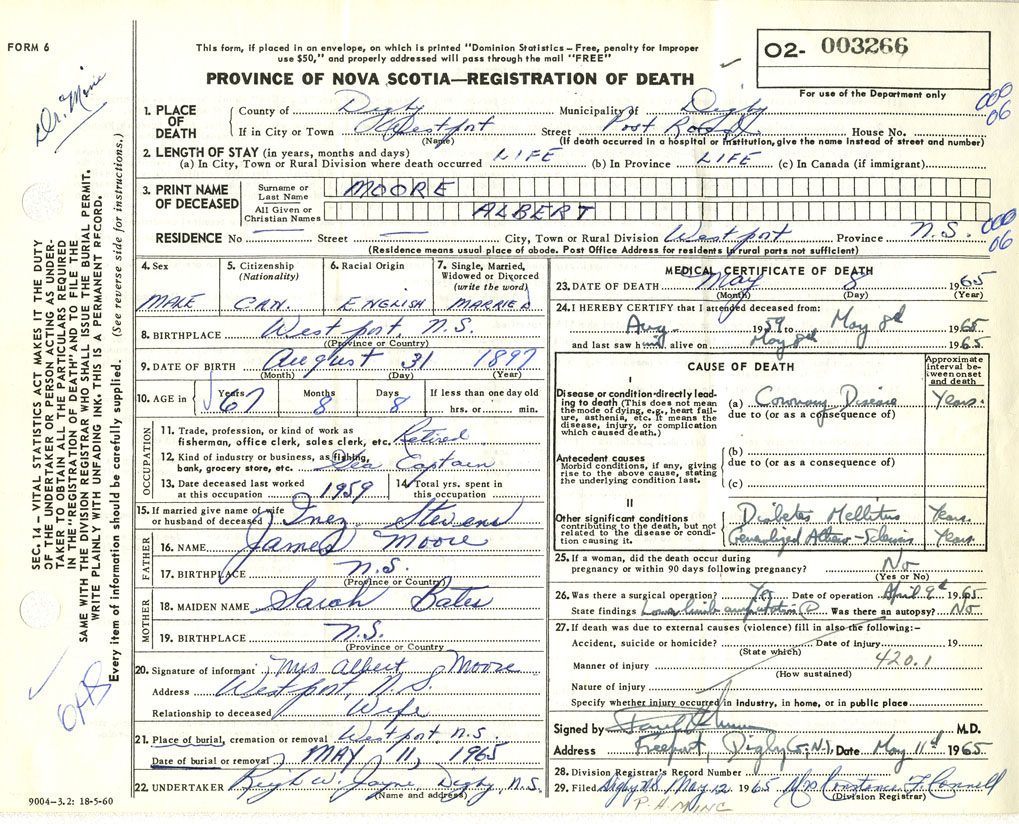 FORM 6
This form, if placed in an envelope, on which is printed "Dominion Statistics – Free, penalty for improper
use $50," and properly addressed will pass through the mail "FREE"
PROVINCE OF NOVA SCOTIA—REGISTRATION OF DEATH
O2- 003266
For use of the Department only
000
06
Dr. Morie
1. PLACE OF DEATH
County of Digby Municipality of Digby
If in City or Town Westport Street Post Road House No.
(Name) (If death occurred in a hospital or institution, give the name instead of street and number)
2. LENGTH OF STAY (in years, months and days)
(a) In City, Town or Rural Division where death occurred LIFE (b) In Province LIFE (c) In Canada (if immigrant)
3. PRINT NAME OF DECEASED
Surname or Last Name MOORE
All Given or Christian Names ALBERT
RESIDENCE No — Street — City, Town or Rural Division Westport Province N.S.
000
06
(Residence means usual place of abode. Post Office Address for residents if rural parts not sufficient)
4. Sex
MALE
5. Citizenship (Nationality)
CAN.
6. Racial Origin
ENGLISH
7. Single, Married, Widowed or Divorced (write the word)
MARRIED
8. BIRTHPLACE Westport, N.S.
(Province or Country)
9. DATE OF BIRTH August 31 1897
(Month) (Day) (Year)
10. AGE in Years 67 Months 8 Days 8 If less than one day old hrs. or min.
OCCUPATION
11. Trade, profession, or kind of work as
fisherman, office clerk, sales clerk, etc. Retired
12. Kind of industry or business, as fishing,
bank, grocery store, etc. Sea Captain
13. Date deceased last worked at this occupation 1959
14. Total yrs. spent in this occupation
15. If married give name of wife
or husband of deceased Inez Stevens
FATHER
16. NAME James Moore
17. BIRTHPLACE N.S.
(Province or Country)
MOTHER
18. MAIDEN NAME Sarah Bates
19. BIRTHPLACE N.S.
(Province or Country
20. Signature of informant Mrs Albert Moore
Address Westport, N.S.
Relationship to deceased Wife
21. Place of burial, cremation or removal Westport N.S.
Date of burial or removal MAY 11, 1965
22. UNDERTAKER W. Jayne, Digby, N.S.
(Name and address)
9004–3.2: 18-5-60
MEDICAL CERTIFICATE OF DEATH
23. DATE OF DEATH May 8 1965
(Month) (Day) (Year)
24. I HEREBY CERTIFY that I attended deceased from:
Aug. 1959 to May 8th 1965
and last saw him alive on May 8th 1965
CAUSE OF DEATH
Approximate interval between onset and death
I
Disease or condition directly leading to death (This does not mean the mode of dying, e.g., heart failure, asthenia, etc. It means the disease, injury, or complication which caused death.)
(a) Coronary Disease Years.
due to (or as a consequence of)
Antecedent causes
Morbid conditions, if any, giving rise to the above cause, stating the underlying condition last.
(b)
due to (or as a consequence of)
(c)
II
Other significant conditions contributing to the death, but not related to the disease or condition causing it.
Diabetes Mellitis Years.
Generalized Athero-Sclerosis Years
25. If a woman, did the death occur during
pregnancy or within 90 days following pregnancy? No
(Yes or No)
26. Was there a surgical operation? Yes Date of operation April 9th 1965
State findings Lower limb amputation Was there an autopsy? No
27. If death was due to external causes (violence) fill in also the following:–
Accident, suicide or homicide? Date of injury 19
(State which)
Manner of injury 420.1
(How sustained)
Nature of injury
Specify whether injury occurred in industry, in home, or in public place
Signed by M.D.
Address Freeport, Digby Co. N.S. Date May 11th 1965
28. Division Registrar's Record Number
29. Filed Digby N.S. May 12 1965 Mrs Constance F. Connell
(Division Registrar)
SEC. 14 — VITAL STATISTICS ACT MAKES IT THE DUTY
OF THE UNDERTAKER OR PERSON ACTING AS UNDER-
TAKER TO OBTAIN ALL THE PARTICULARS REQUIRED
IN THE "REGISTRATION OF DEATH" AND TO FILE THE
SAME WITH THE DIVISION REGISTRAR WHO SHALL ISSUE THE BURIAL PERMIT.
WRITE PLAINLY WITH UNFADING INK. THIS IS A PERMANENT RECORD.
Every item of information should be carefully supplied. (See reverse side for instructions.)